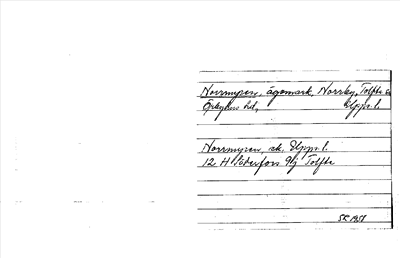 Norrmyren, ägomark, Norrby, Tolfta sn
Örbyhus hd, Upps. l.
Norrmyren, sk. Upps. l.
12 H Söderfors 9g Tolfta
SR 1951